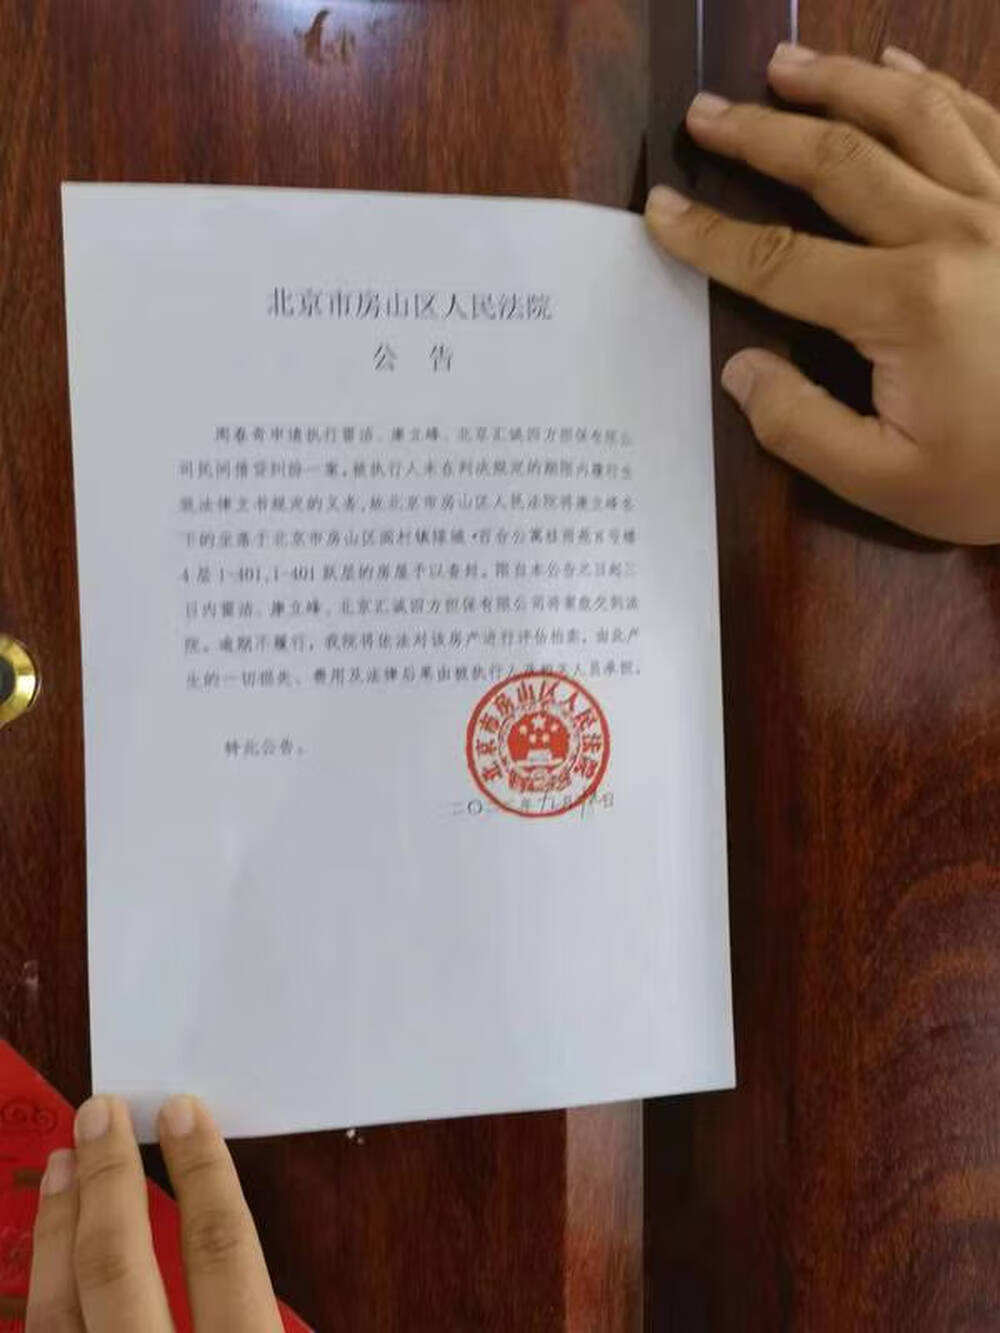 北京市房山区人民法院
公 告
周春奇申请执行雷洁、康立峰、北京汇诚四方担保有限公
司民间借贷纠纷一案，被执行人未在判决规定的期限内履行生
效法律文书规定的义务，故北京市房山区人民法院将康立峰名
下的坐落于北京市房山区阎村镇绿城·百合公寓桂雨苑8号楼
4层1-401,1-401跃层的房屋予以查封。限自本公告之日起三
日内雷洁、康立峰、北京汇诚四方担保有限公司将案款交到法
院。逾期不履行，我院将依法对该房产进行评估拍卖，由此产
生的一切损失、费用及法律后果由被执行人及相关人员承担。
特此公告。
北京市房山区人民法院
二〇二 年 月 日